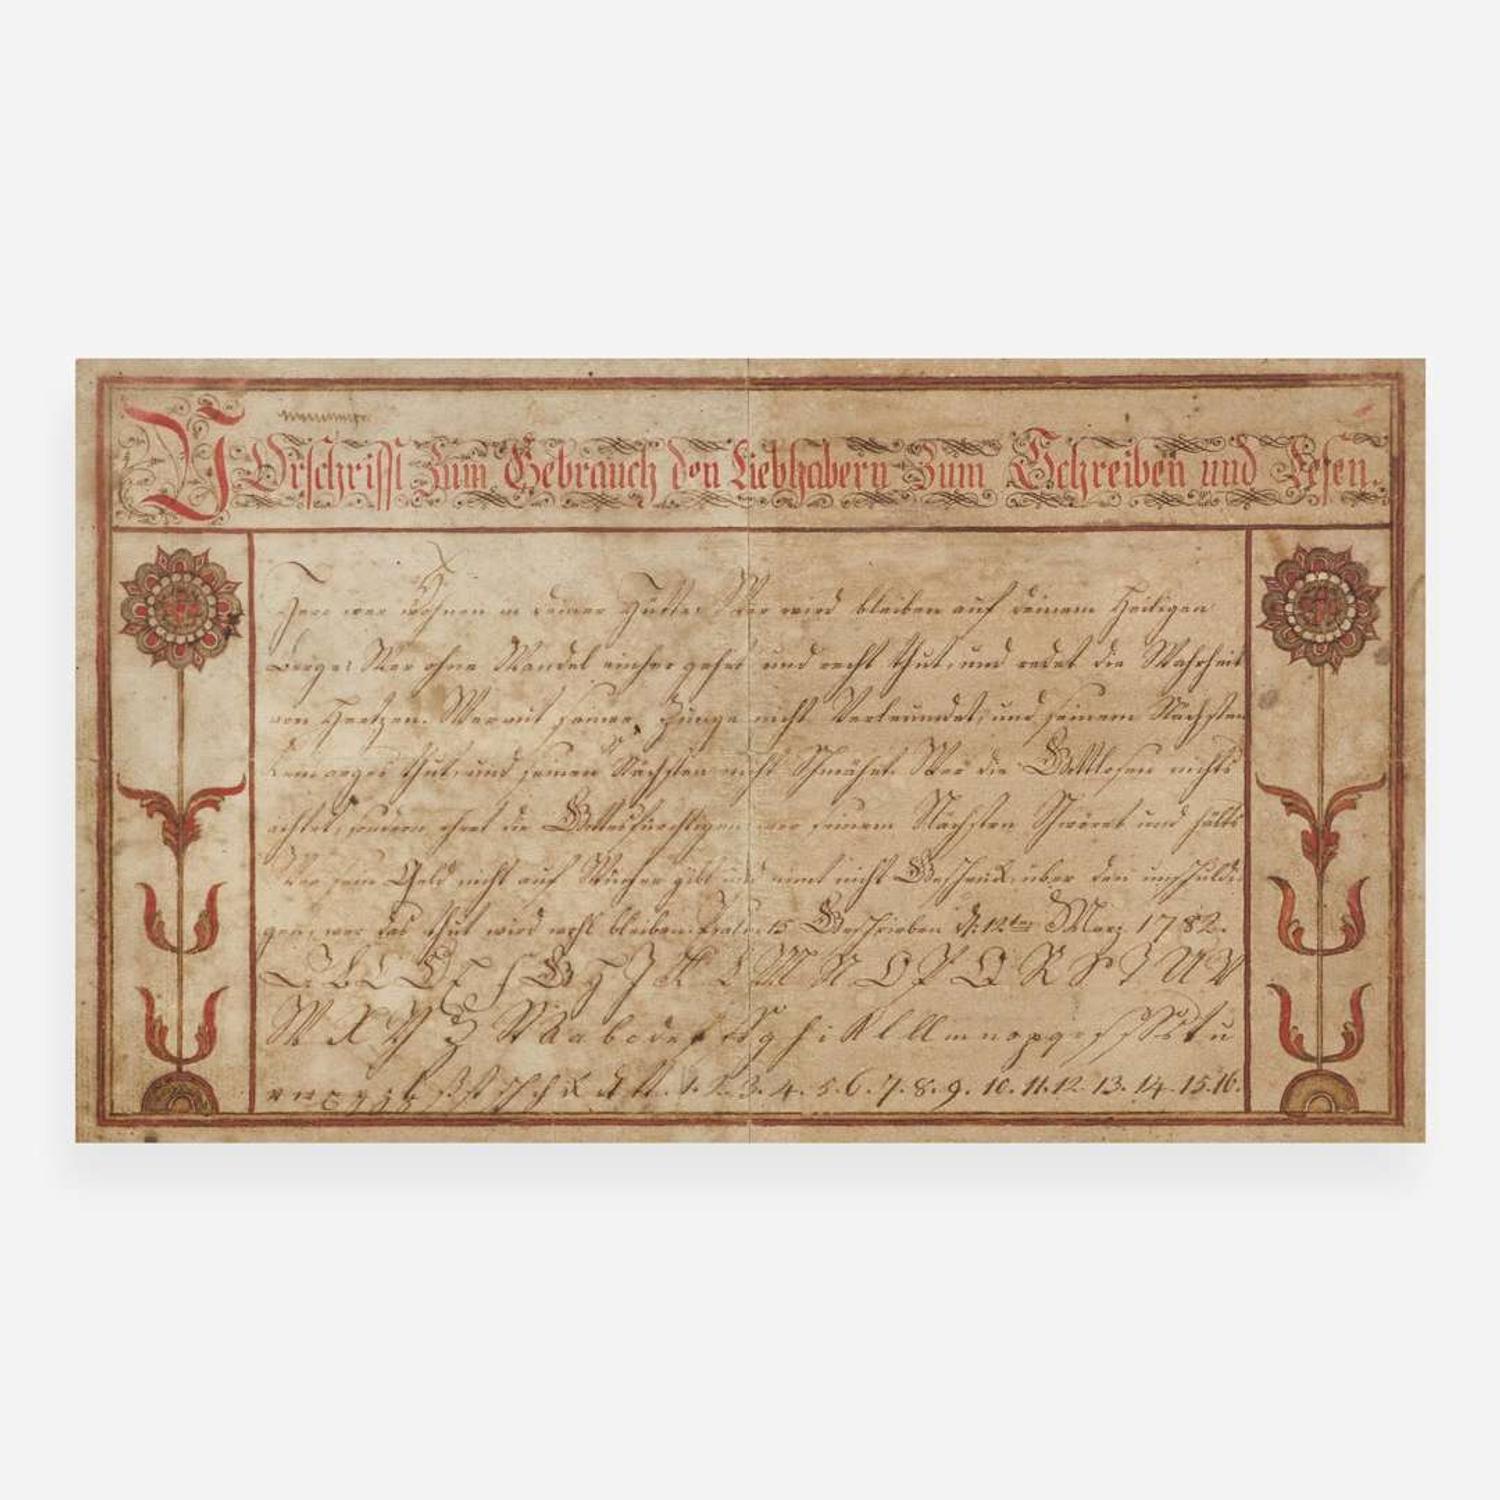 VOrschrifft Zum Gebrauch den Liebhabern Zum Schreiben und Lesen.
Herr wer wohnen in deiner Hütte: Wer wird bleiben auf deinem Heiligen
Berge: Wer ohne Wandel einher gehet und recht thut, und redet die Wahrheit
von Hertzen. Wer mit seiner Zunge nicht Verleumdet, und seinem Nächsten
kein arges thut, und seinen Nächsten nicht Schmähet. Wer die Gottlosen nichts
achtet, sondern ehret die Gottesfürchtigen wer seinem Nächsten Schwöret und hälts
Wer sein Geld nicht auf Wucher gibt und nimt nicht Geschenck über den unschuldi
gen, wer das thut wird wohl bleiben. Psalm 15 Geschrieben d: 12ten Merz 1782.
A B C D E F G H J K L M N O P Q R S T U V
W X Y Z a b c d e f g h i k l ll m n o p q r s t u
v w x y z 1. 2. 3. 4. 5. 6. 7. 8. 9. 10. 11. 12. 13. 14. 15. 16.